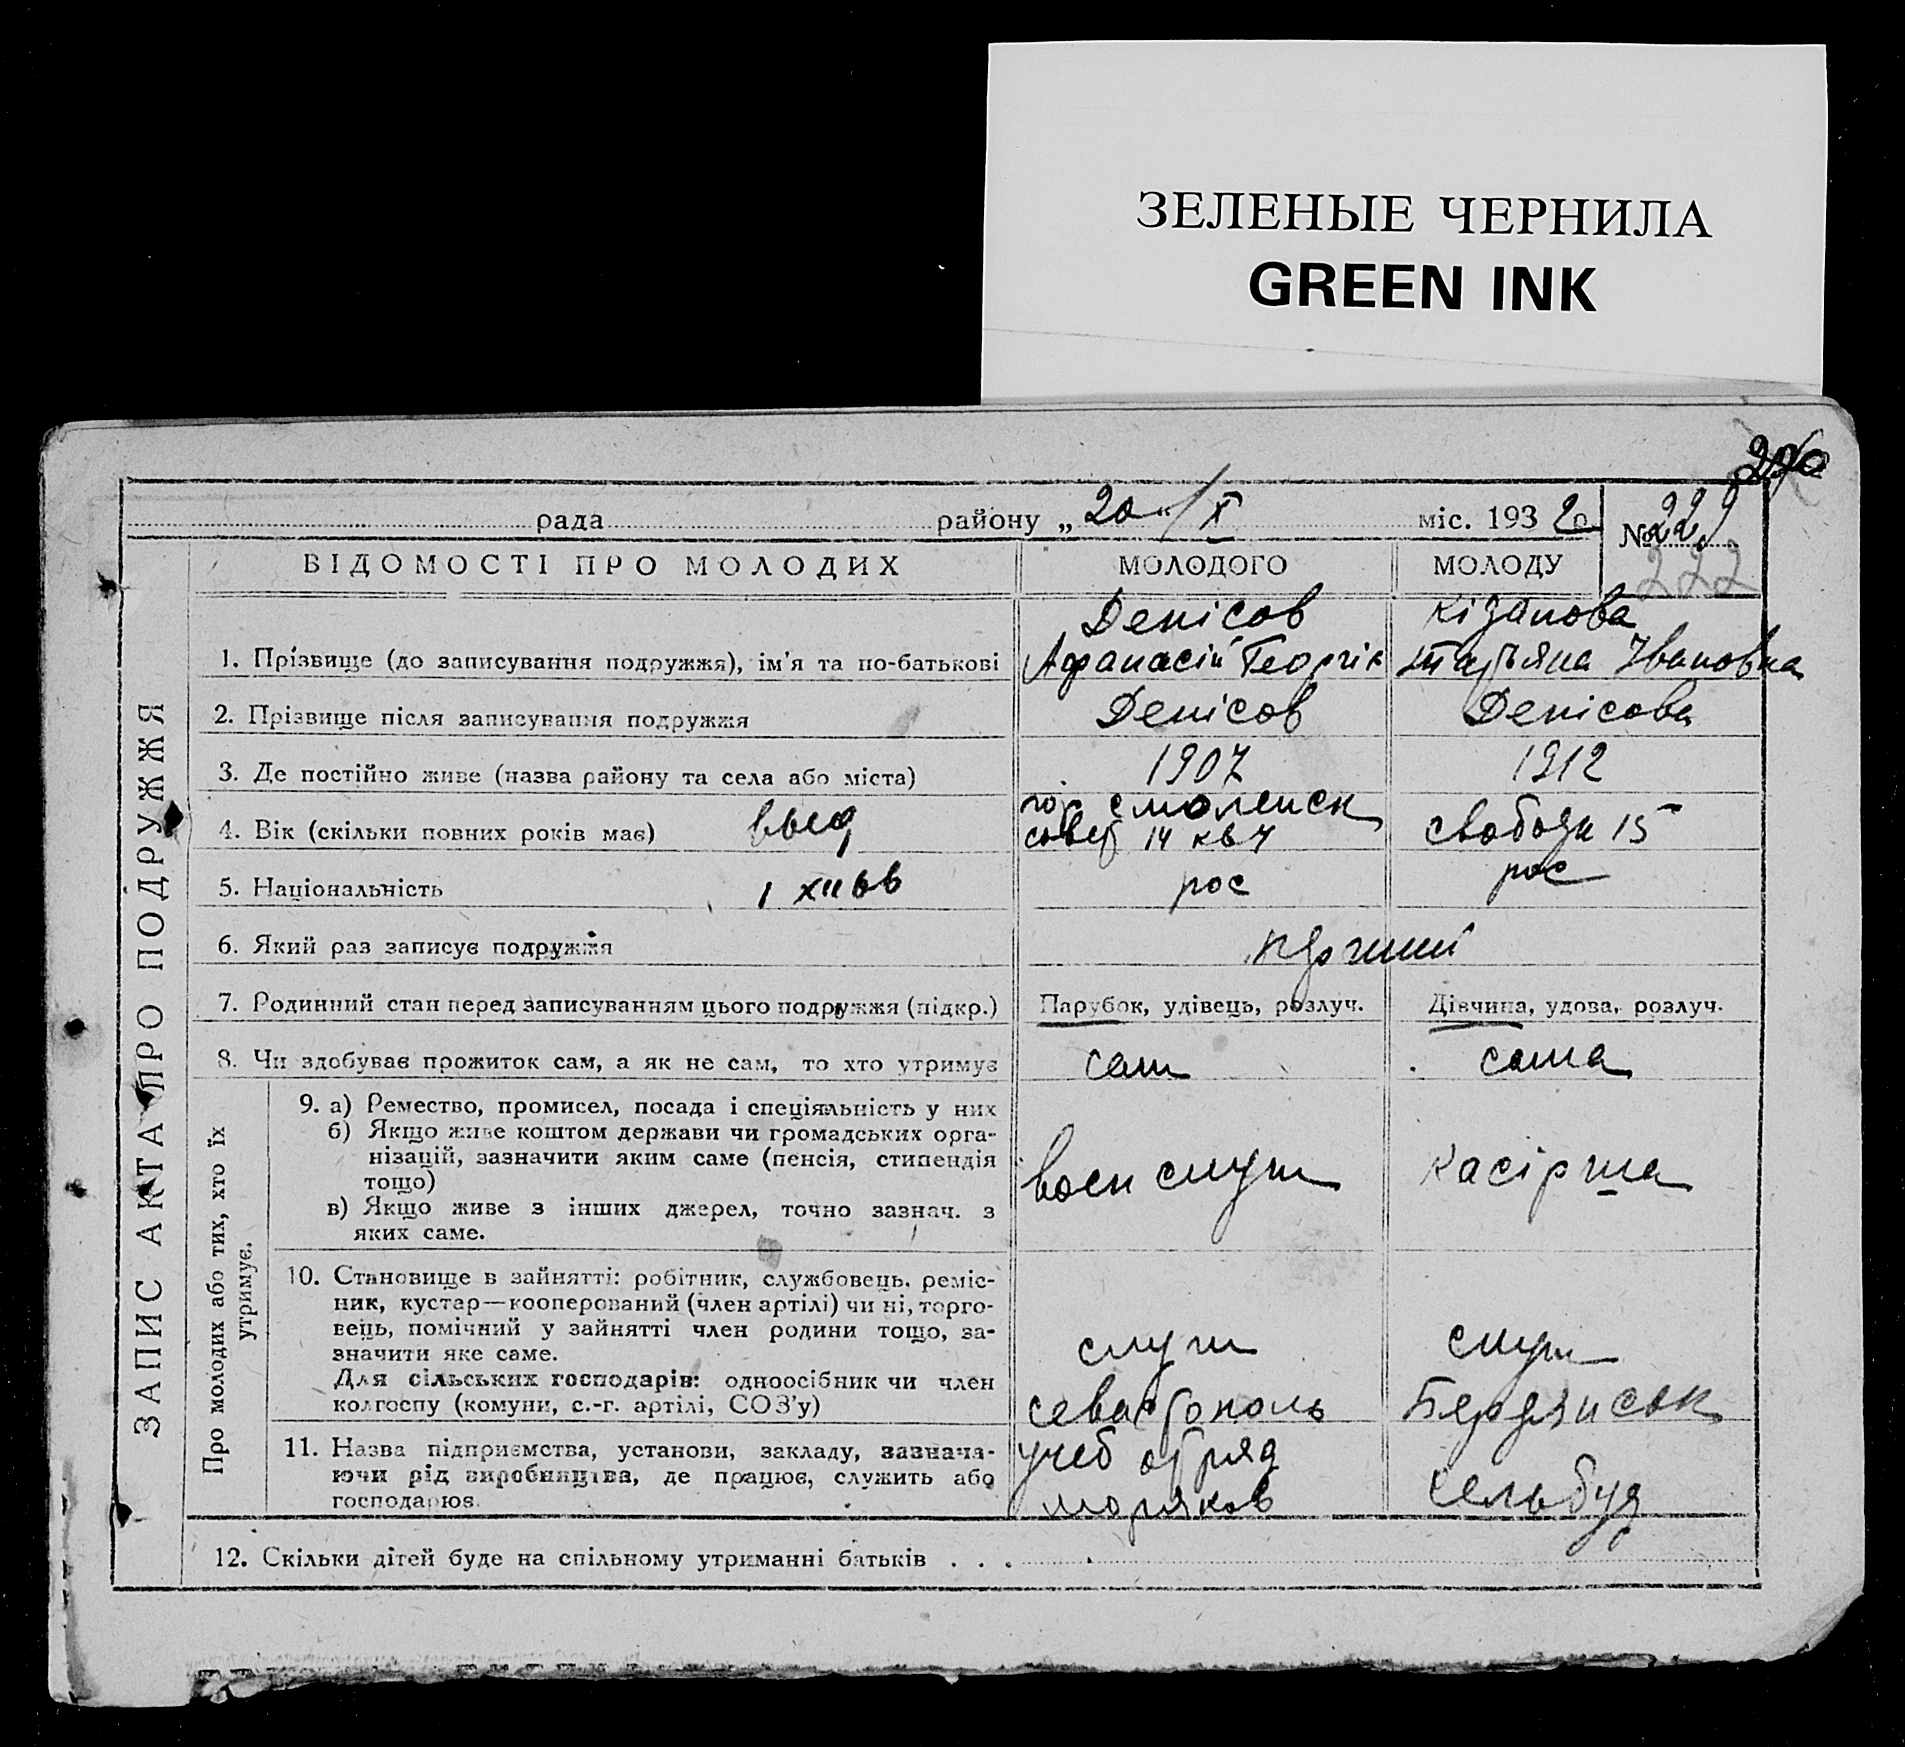 ЗЕЛЕНЫЕ ЧЕРНИЛА
GREEN INK
рада району „20“/X міс. 193 2 р. № 229
222
ВІДОМОСТІ ПРО МОЛОДИХ МОЛОДОГО МОЛОДУ
Денісов
1. Прізвище (до записування подружжя), ім'я та по-батькові Афанасій Георгік Татьяна Івановна
2. Прізвище після записування подружжя Денісов Денісова
1907 1912
3. Де постійно живе (назва району та села або міста)
гор Смоленск
4. Вік (скільки повних років має) выд совет 14 кв 7 свободи 15
5. Національність 1 XII 66 рос рос
6. Який раз записує подружжя перший
7. Родинний стан перед записуванням цього подружжя (підкр.) Парубок, удівець, розлуч. Дівчина, удова, розлуч.
8. Чи здобуває прожиток сам, а як не сам, то хто утримує сам сама
ЗАПИС АКТА ПРО ПОДРУЖЖЯ
Про молодих або тих, хто їх
утримує.
9. а) Ремество, промисел, посада і спеціяльність у них
б) Якщо живе коштом держави чи громадських орга-
нізацій, зазначити яким саме (пенсія, стипендія
тощо)
воен служ касірша
в) Якщо живе з інших джерел, точно зазнач. з
яких саме.
10. Становище в зайнятті: робітник, службовець, реміс-
ник, кустар—кооперований (член артілі) чи ні, торго-
вець, помічний у зайнятті член родини тощо, за-
значити яке саме.
служ служ
Для сільських господарів: одноосібник чи член
колгоспу (комуни, с.-г. артілі, СОЗ'у)
севастополь Бердянськ
11. Назва підприємства, установи, закладу, зазнача-
ючи рід виробництва, де працює, служить або
господарює.
учеб отряд
моряков сельбуд
12. Скільки дітей буде на спільному утриманні батьків . . .